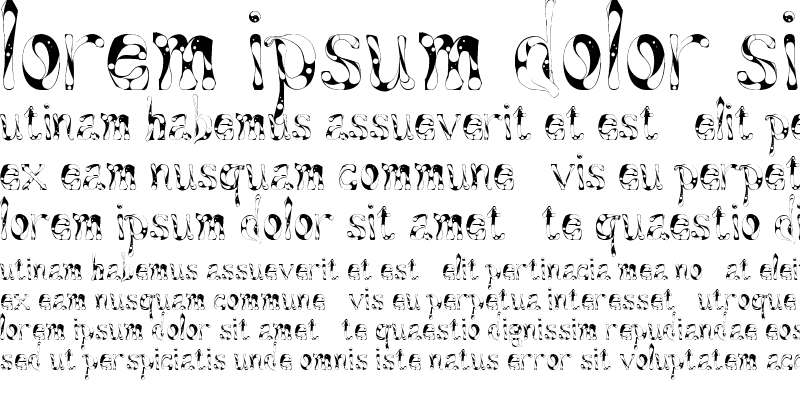 lorem ipsum dolor si
utinam habemus assueverit et est elit pe
ex eam nusquam commune vis eu perpet
lorem ipsum dolor sit amet te quaestio di
utinam habemus assueverit et est elit pertinacia mea no at eleif
ex eam nusquam commune vis eu perpetua interesset utroque
lorem ipsum dolor sit amet te quaestio dignissim repudiandae eos
sed ut perspiciatis unde omnis iste natus error sit voluptatem acc